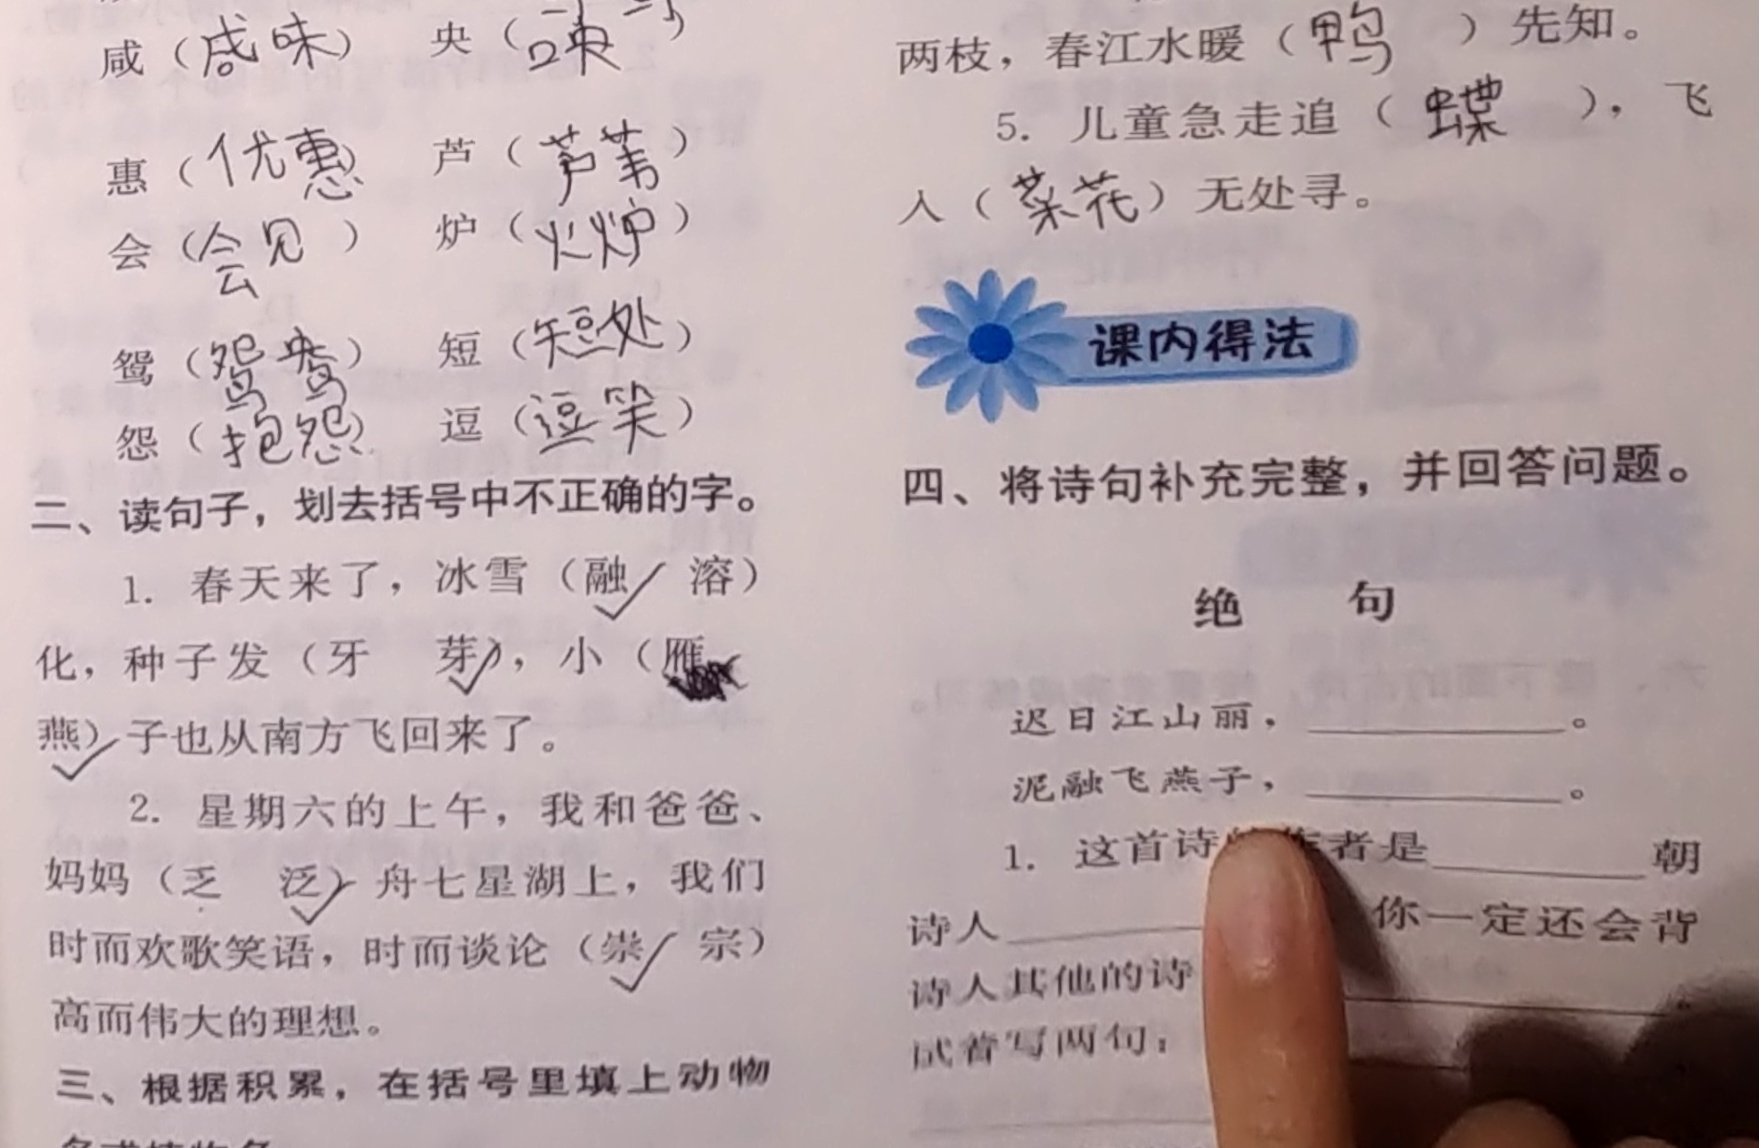 咸（咸味） 央（
惠（优惠） 芦（芦苇）
会（会见） 炉（火炉）
鸳（鸳鸯） 短（短处）
怨（抱怨） 逗（逗笑）
二、读句子，划去括号中不正确的字。
1. 春天来了，冰雪（融 溶）
化，种子发（牙 芽），小（雁
燕）子也从南方飞回来了。
2. 星期六的上午，我和爸爸、
妈妈（乏 泛）舟七星湖上，我们
时而欢歌笑语，时而谈论（崇 宗）
高而伟大的理想。
三、根据积累，在括号里填上动物
两枝，春江水暖（鸭）先知。
5. 儿童急走追（蝶），飞
入（菜花）无处寻。
课内得法
四、将诗句补充完整，并回答问题。
绝 句
迟日江山丽，
。
泥融飞燕子，
。
1. 这首诗 者是 朝
诗人 你一定还会背
诗人其他的诗
试着写两句：